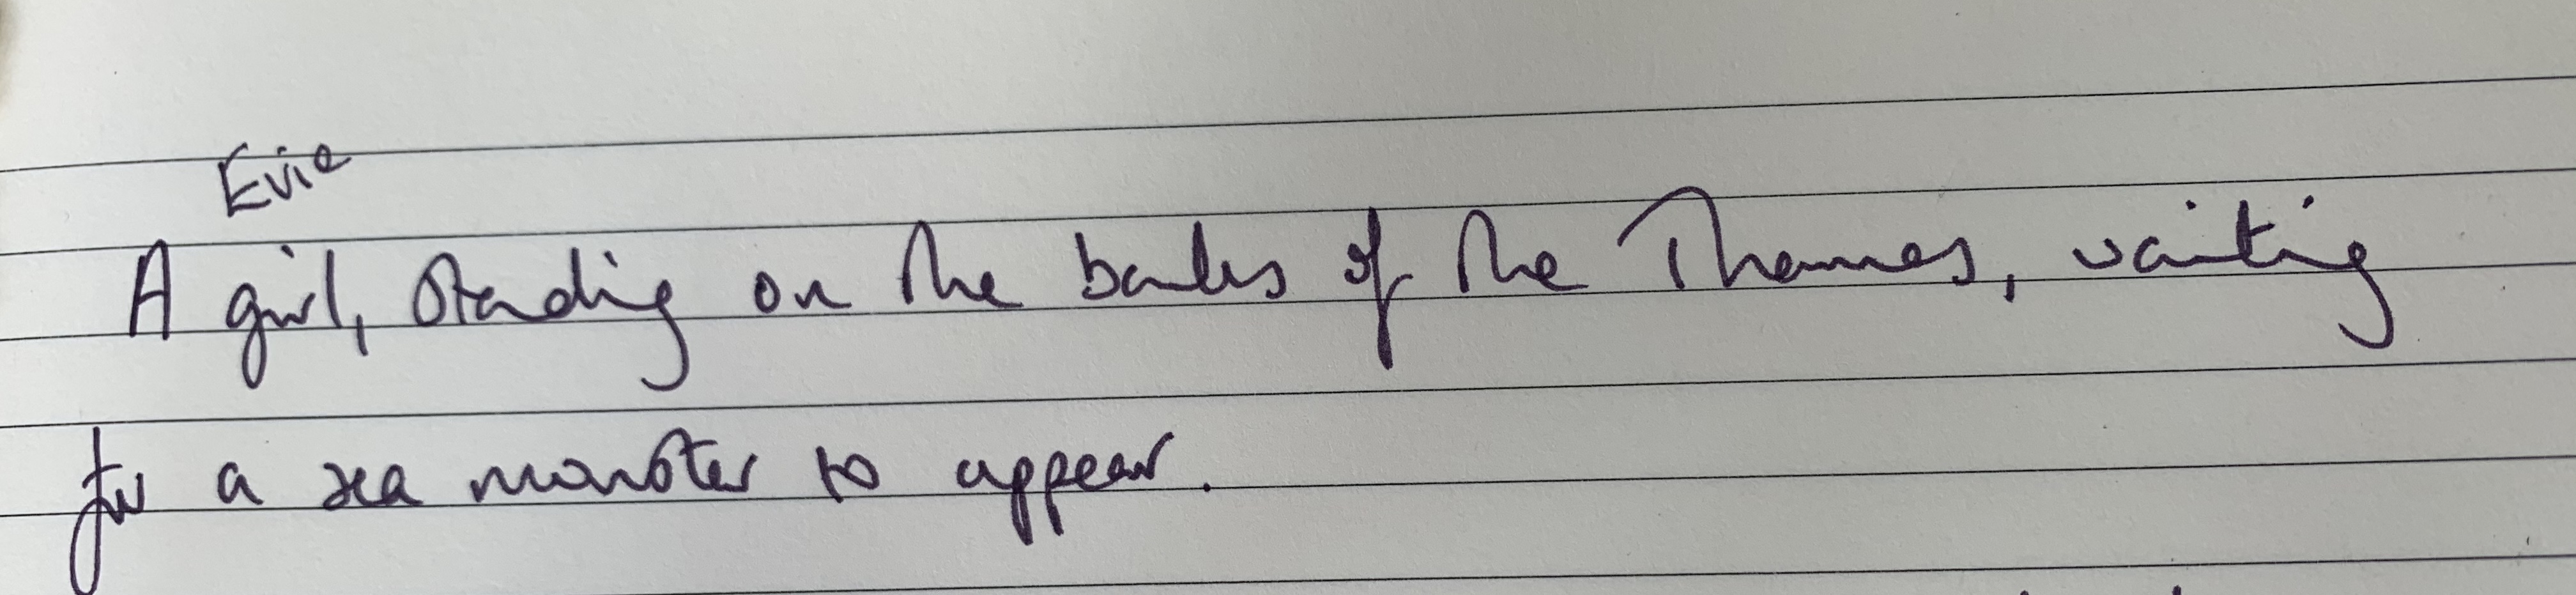 Evie
A girl, standing on the banks of the Thames, waiting
for a sea monster to appear.